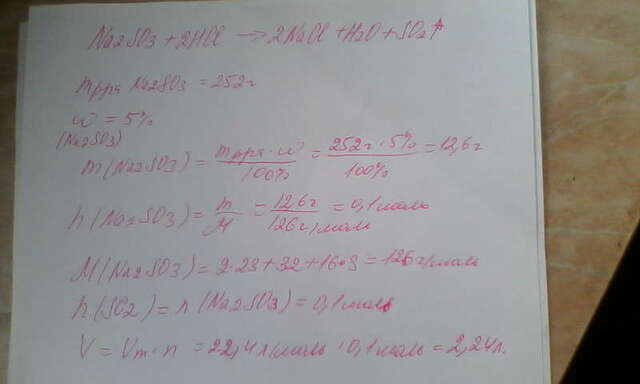 Na2SO3 + 2HCl → 2NaCl + H2O + SO2↑
mр-ра Na2SO3 = 252г
ω = 5%
(Na2SO3)
m(Na2SO3) = mр-ра·ω/100% = 252г·5%/100% = 12,6г
n(Na2SO3) = m/M = 12,6г/126г/моль = 0,1моль
M(Na2SO3) = 2·23+32+16·3 = 126г/моль
n(SO2) = n(Na2SO3) = 0,1моль
V = Vm·n = 22,4л/моль·0,1моль = 2,24л.